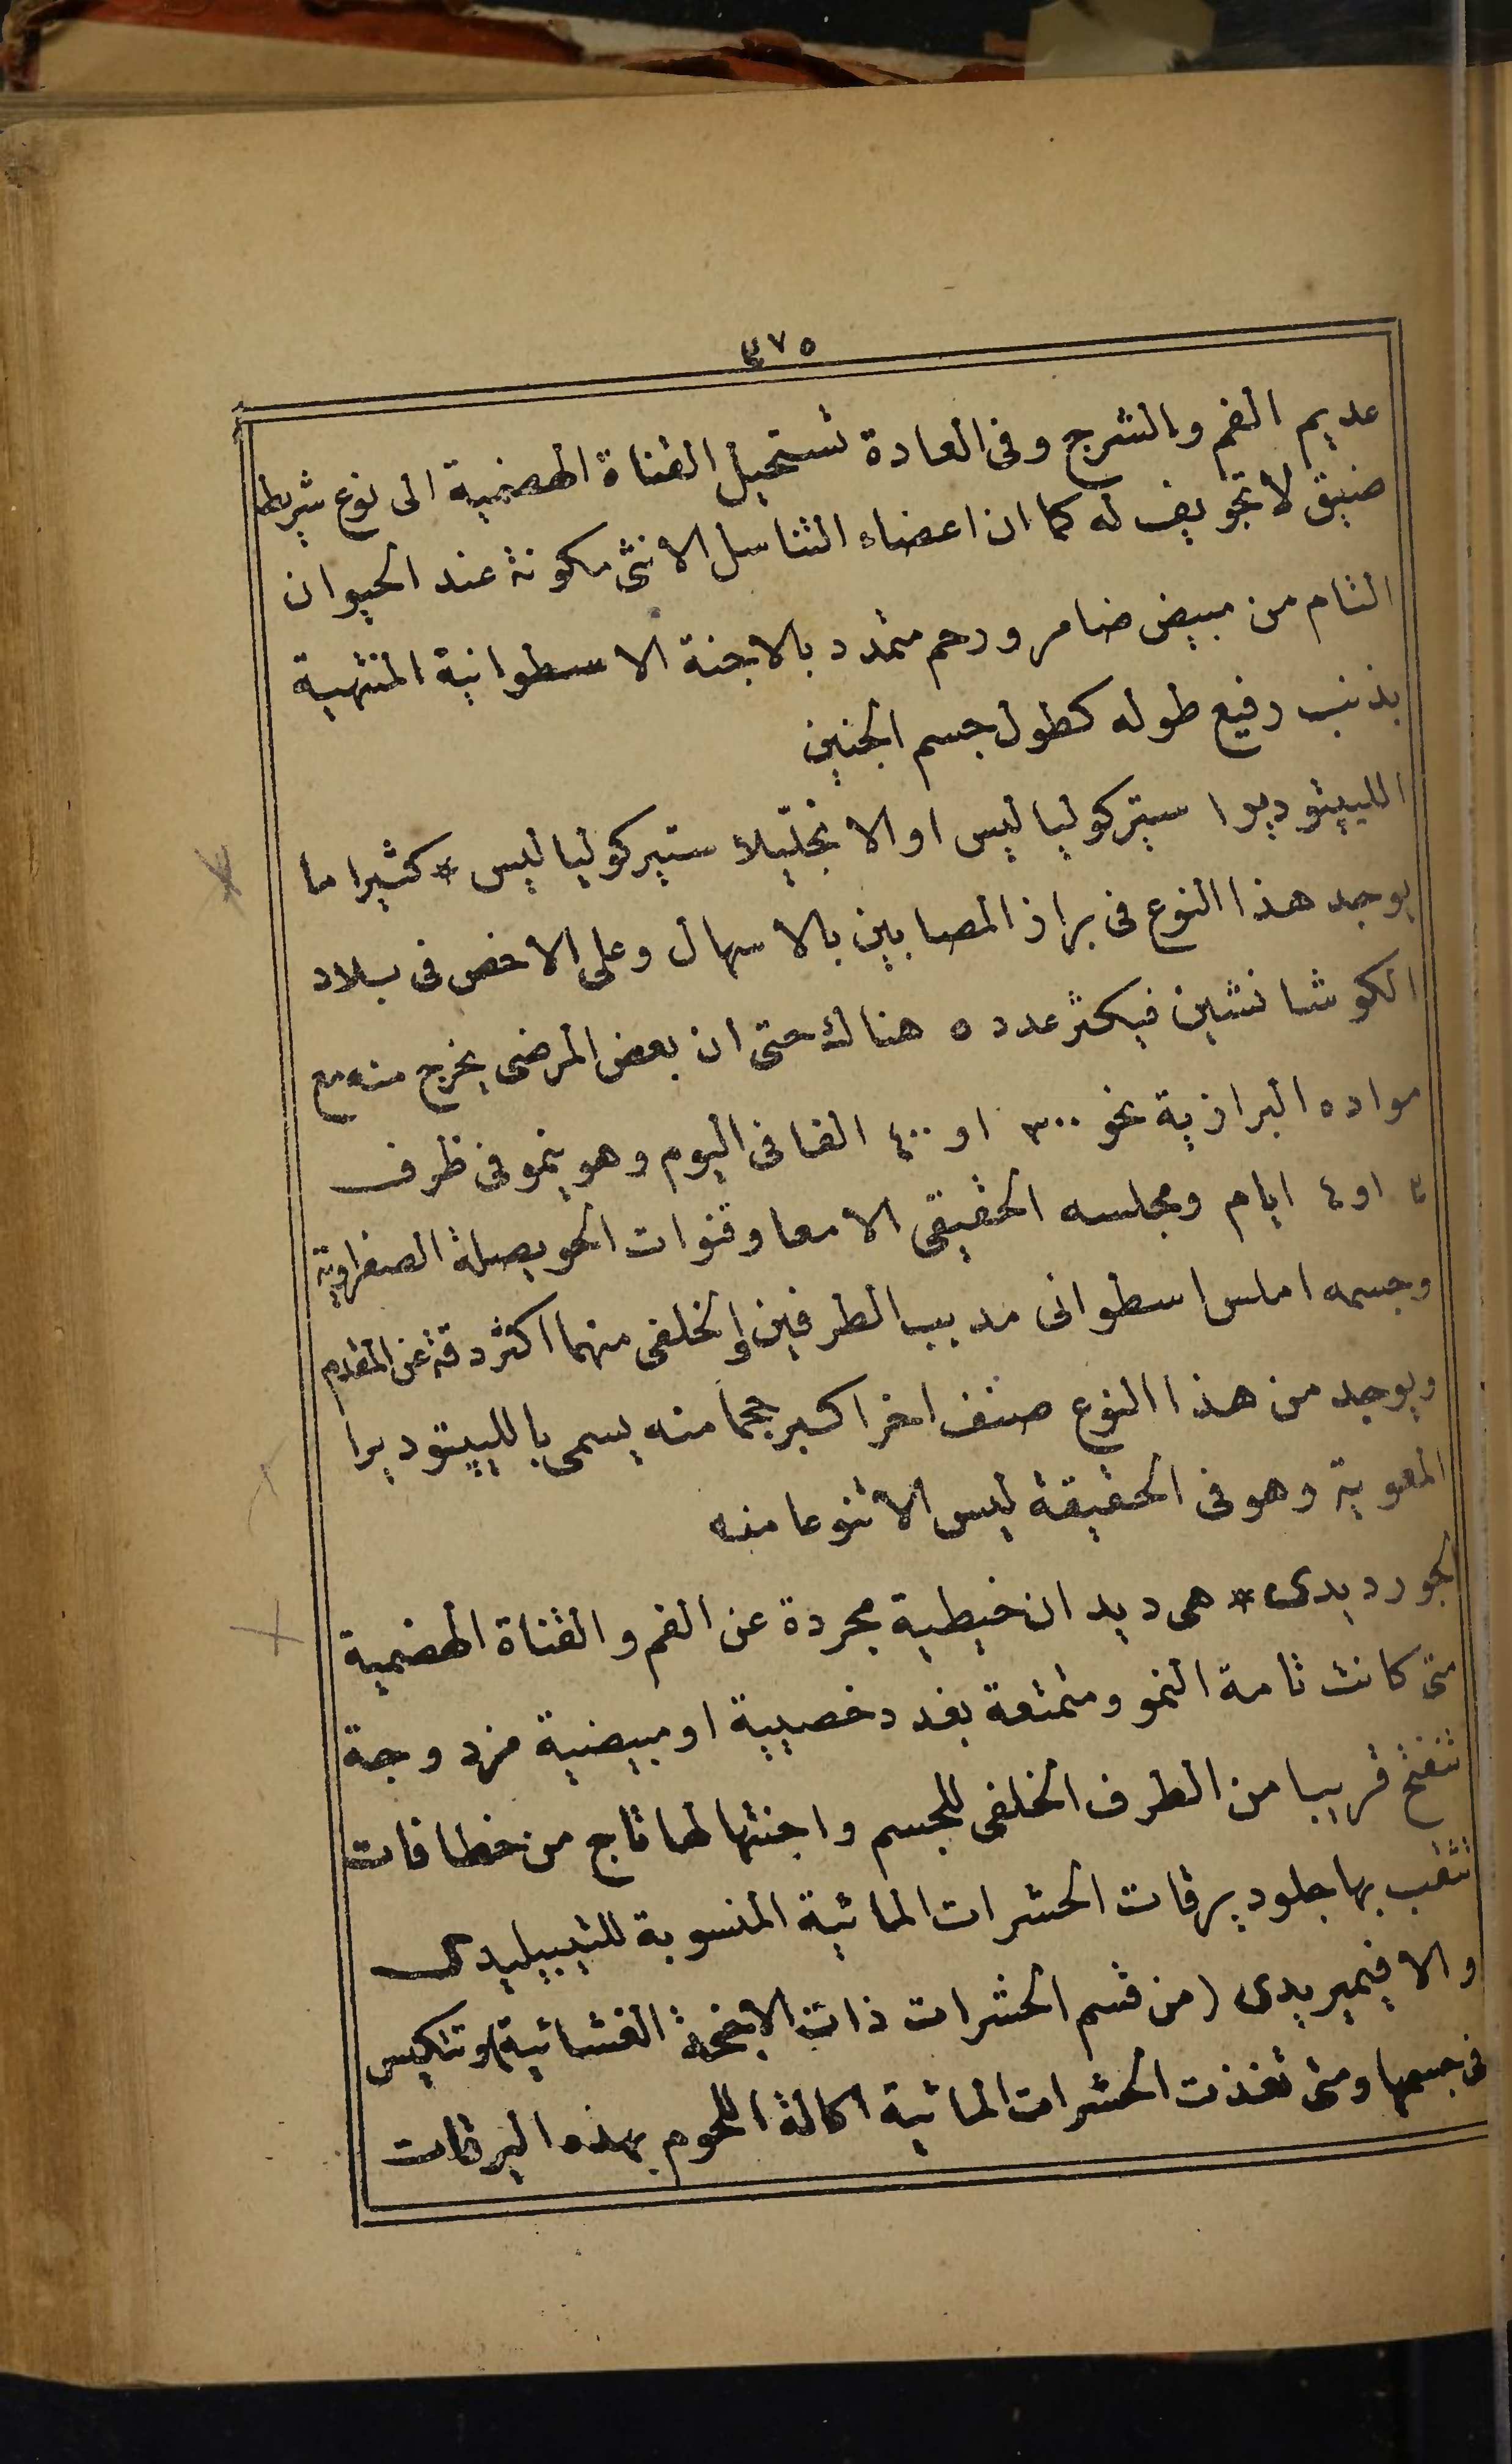 ٤٧٥
عديم الفم والشرج وفى العادة تستحيل القناة الهضمية الى نوع شريط
ضيق لا تجويف له كما ان اعضاء التناسل الانثى مكونة عند الحيوان
التام من مبيض ضامر ورحم متمدد بالاجنة الاسطوانية المنتهية
بذنب رفيع طوله كطول جسم الجنين
اللبيتوديرا ستركولياليس او الانجليلا ستيركولياليس * كثيرا ما
يوجد هذا النوع فى براز المصابين بالاسهال وعلى الاخص فى بلاد
الكوشانشين فيكثر عدده هناك حتى ان بعض المرضى يخرج منه مع
مواده البرازية نحو ٣٠٠ او ٤٠٠ الفا فى اليوم وهو ينمو فى ظرف
٣ او ٤ ايام ومجلسه الحقيقى الامعا وقنوات الحويصلة الصفراوية
وجسمه املس اسطوانى مدبب الطرفين والخلفى منهما اكثر دقة عن المقدم
ويوجد من هذا النوع صنف اخر اكبر حجما منه يسمى باللبيتوديرا
المعوية وهو فى الحقيقة ليس الا تنوعا منه
الجورديدى * هى ديدان خيطية مجردة عن الفم والقناة الهضمية
متى كانت تامة النمو ومتمتعة بغدد خصيية او مبيضية مزدوجة
تنفتح قريبا من الطرف الخلفى للجسم واجنتها لها تاج من خطافات
تثقب بها جلود يرقات الحشرات المائية المنسوبة للتيبيليدى
والافيميريدى (من قسم الحشرات ذات الاجنحة الغشائية) وتتكيس
فى جسمها ومتى تغذت الحشرات المائية اكالة اللحوم بهذه اليرقات